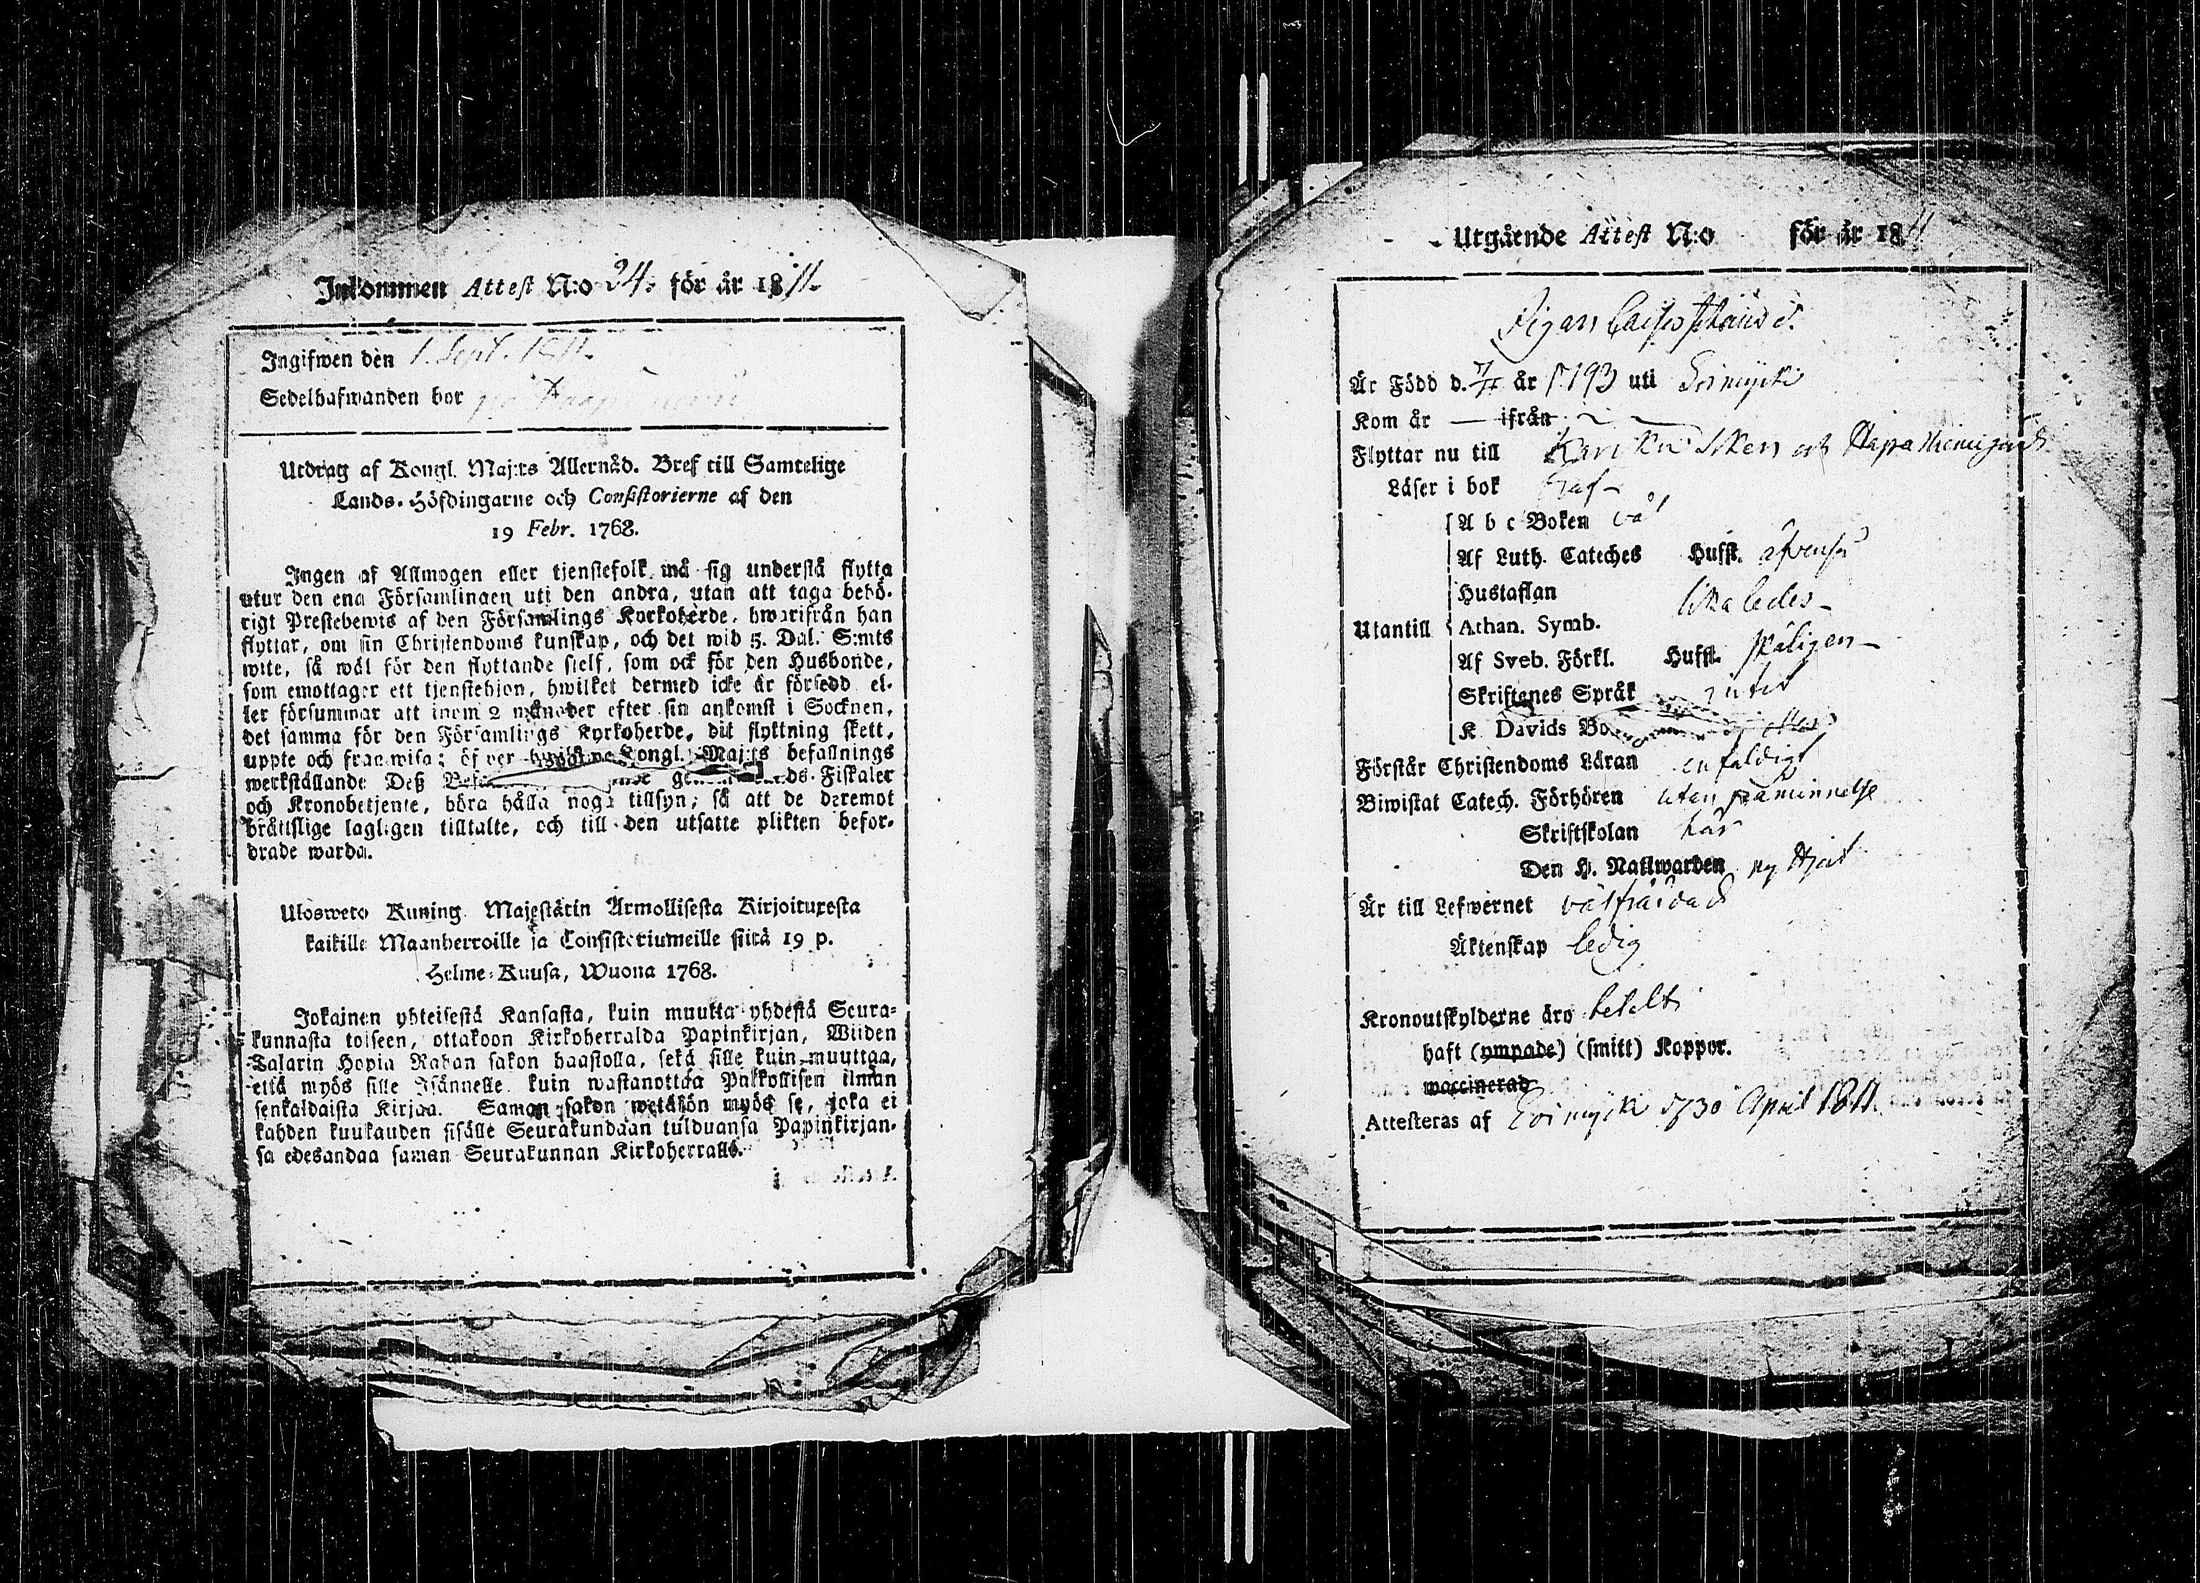 Inkommen Attest N:o 24. för år 1811.
Ingifwen den 1. Sept. 1811.
Sedelhafwanden bor på
Utdrag af Kongl. Maj:ts Allernåd. Bref till Samtelige
Lands-Höfdingarne och Consistorierne af den
19 Febr. 1768.
Ingen af Allmogen eller tjenstefolk må sig understå flytta
utur den ena Församlingen uti den andra, utan att taga behö-
rigt Prestebewis af den Församlings Kyrkoherde, hwarifrån han
flyttar, om sin Christendoms kunskap, och det wid 5. Dal. S:mts
wite, så wäl för den flyttande sielf, som ock för den Husbonde,
som emottager ett tjenstehjon, hwilket dermed icke är försedd el-
ler försummar att inom 2 månader efter sin ankomst i Socknen,
det samma för den Församlings Kyrkoherde, dit flyttning skett,
uppte och framwisa; öfwer Kongl. Maj:ts befallnings
werkställande Deß ds-Fiskaler
och Kronobetjente, böra hålla noga tillsyn; så att de deremot
bråttslige lagligen tilltalte, och till den utsatte plikten befor-
drade warda.
Uloswето Kuning. Majestätin Armollisesta Kirjoituxesta
kaikille Maanherroille ja Consistoriumeille siitä 19 p.
Helme-Kuusa, Wuona 1768.
Jokainen yhteisestä Kansasta, kuin muutta yhdestä Seura-
kunnasta toiseen, ottakoon Kirkoherralda Papinkirjan, Wiiden
Talarin Hopia Rahan sakon haastolla, sekä sille kuin muuttaa,
että myös sille Isännelle kuin wastanottaa Palkollisen ilman
senkaldaista Kirjaa. Saman sakon wetäkön myös se, joka ei
kahden kuukauden sisälle Seurakundaan tulduansa Papinkirjan-
sa edesandaa saman Seurakunnan Kirkoherralle.
Utgående Attest N:o för år 1811
Pigan Caisa
Är Född d. 7/11 år 1793 uti Soinijoki
Kom år — ifrån
Flyttar nu till
Läser i bok
A b c Boken väl
Af Luth. Cateches Hufst. äfvenså
Hustaflan
likaledes
Utantill Athan. Symb.
Af Sveb. Förkl. Hufst. skäligen
Skriftenes Språk intet
K. Davids Bo
Förstår Christendoms Läran enfaldigt
Biwistat Catech. Förhören utan påminnelse
Skriftskolan här
Den H. Nattwarden
Är till Lefwernet välfräjdad
Äktenskap ledig
Kronoutskylderne äro betalt
haft (ympade) (smitt) Koppor.
waccinerad
Attesteras af 30 April 1811.